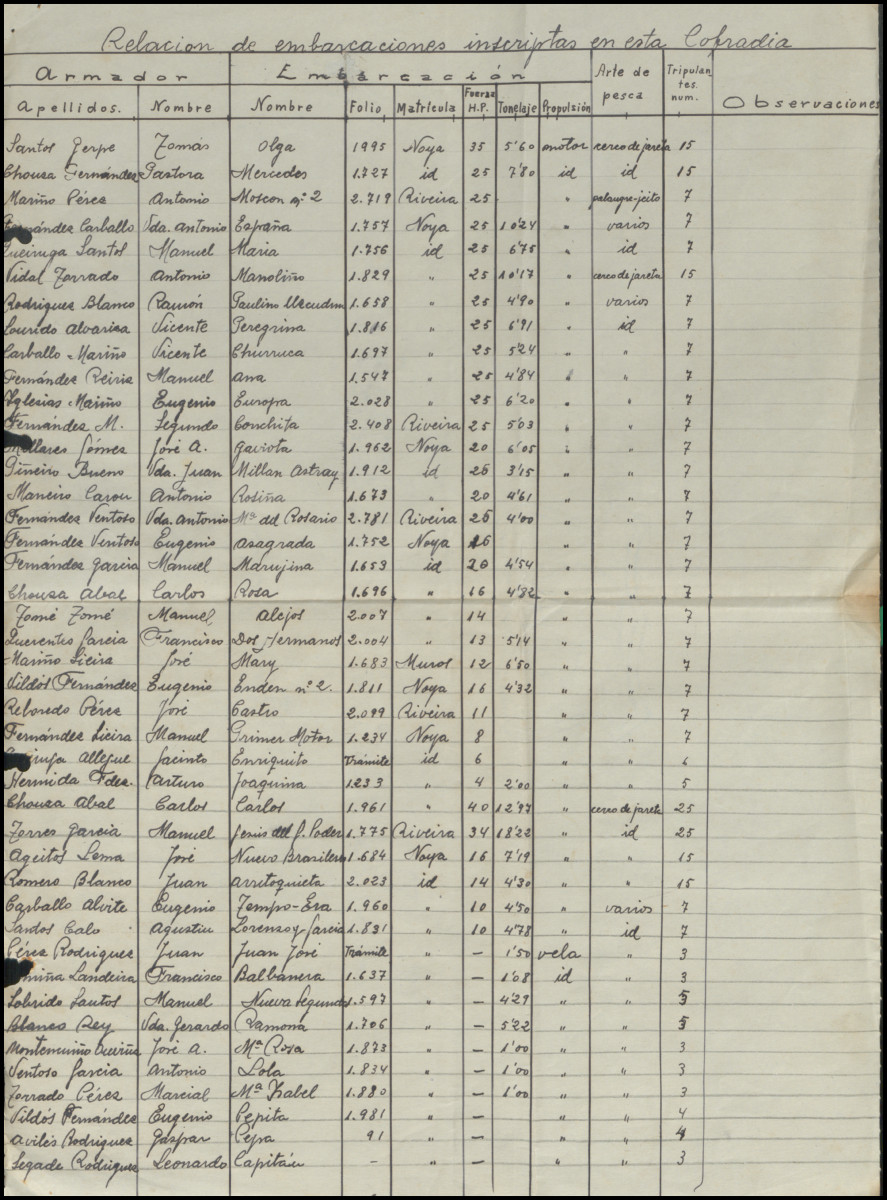 Relacion de embarcaciones inscriptas en esta Cofradia
Armador Embarcación Arte de pesca Tripulantes. num. Observaciones
Apellidos. Nombre Nombre Folio Matrícula Fuerza H.P. Tonelaje Propulsión
Santos Gerpe Tomás Olga 1995 Noya 35 5'60 motor cerco de jareta 15
Chousa Fernández Pastora Mercedes 1.727 id 25 7'80 id id 15
Mariño Pérez Antonio Moscon nº 2 2.719 Riveira 25 " palangre-jeito 7
Fernández Carballo Vda. Antonio España 1.757 Noya 25 10'24 " varios 7
Queiruga Santos Manuel Maria 1.756 id 25 6'75 " id 7
Vidal Torrado Antonio Manoliño 1.829 " 25 10'17 " cerco de jareta 15
Rodriguez Blanco Ramón Paulino Uzcudun 1.658 " 25 4'90 " varios 7
Lourido Alvariza Vicente Peregrina 1.816 " 25 6'91 " id 7
Carballo-Mariño Vicente Churruca 1.697 " 25 5'24 " " 7
Fernández Reiris Manuel Ana 1.547 " 25 4'84 " " 7
Yglesias-Mariño Eugenio Europa 2.028 " 25 6'20 " " 7
Fernández M. Segundo Conchita 2.408 Riveira 25 5'03 " " 7
Gómez José A. Gaviota 1.962 Noya 20 6'05 " " 7
Piñeiro Bueno Vda. Juan Millan Astray 1.912 id 26 3'15 " " 7
Maneiro Carou Antonio Rosiña 1.673 " 20 4'61 " " 7
Fernández Ventoso Vda. Antonio Mª del Rosario 2.781 Riveira 26 4'00 " " 7
Fernández Ventoso Eugenio Asagrada 1.752 Noya 16 " " 7
Fernández Garcia Manuel Marujina 1.653 id 20 4'54 " " 7
Chousa Abal Carlos Rosa 1.696 " 16 4'82 " " 7
Tomé Tomé Manuel Alejos 2.007 " 14 " " 7
Querentes Garcia Francisco Dos Hermanos 2.004 " 13 5'14 " " 7
Mariño Lieira José Mary 1.683 Muros 12 6'50 " " 7
Vildós Fernández Eugenio Enden nº 2. 1.811 Noya 16 4'32 " " 7
Reboredo Pérez José Castro 2.099 Riveira 11 " " 7
Fernández Lieira Manuel Primer Motor 1.234 Noya 8 " " 7
Allegue Jacinto Enriquito Trámite id 6 " " 6
Hermida Fdez. Arturo Joaquina 1233 " 4 2'00 " " 5
Chousa Abal Carlos Carlos 1.961 " 40 12'97 " cerco de jareta 25
Torres Garcia Manuel Jesús del G. Poder 1.775 Riveira 34 18'22 " id 25
Ageitos Lema José Nuevo Brasilero 1.684 Noya 16 7'19 " " 15
Romero Blanco Juan Arritoquieta 2.023 id 14 4'30 " " 15
Carballo Alvite Eugenio Tempo-Era 1.960 " 10 4'50 " varios 7
Santos Calo Agustin Lorenzo y Garcia 1.831 " 10 4'78 " id 7
Pérez Rodriguez Juan Juan José Trámite " — 1'50 vela " 3
Landeira Francisco Balbanera 1.637 " — 1'08 id " 3
Lobrido Santos Manuel Nueva Segunda 1.597 " — 4'29 " " 5
Blanco Rey Vda. Gerardo Ramona 1.706 " — 5'22 " " 5
José A. Mª Rosa 1.873 " — 1'00 " " 3
Ventoso Garcia Antonio Lola 1.834 " — 1'00 " " 3
Torrado Pérez Marcial Mª Isabel 1.880 " — 1'00 " " 3
Vildós Fernández Eugenio Pepita 1.981 " — " " 4
Avilés Rodriguez Gaspar Pepa 91 " — " " 4
Segade Rodriguez Leonardo Capitán - " — " " 3